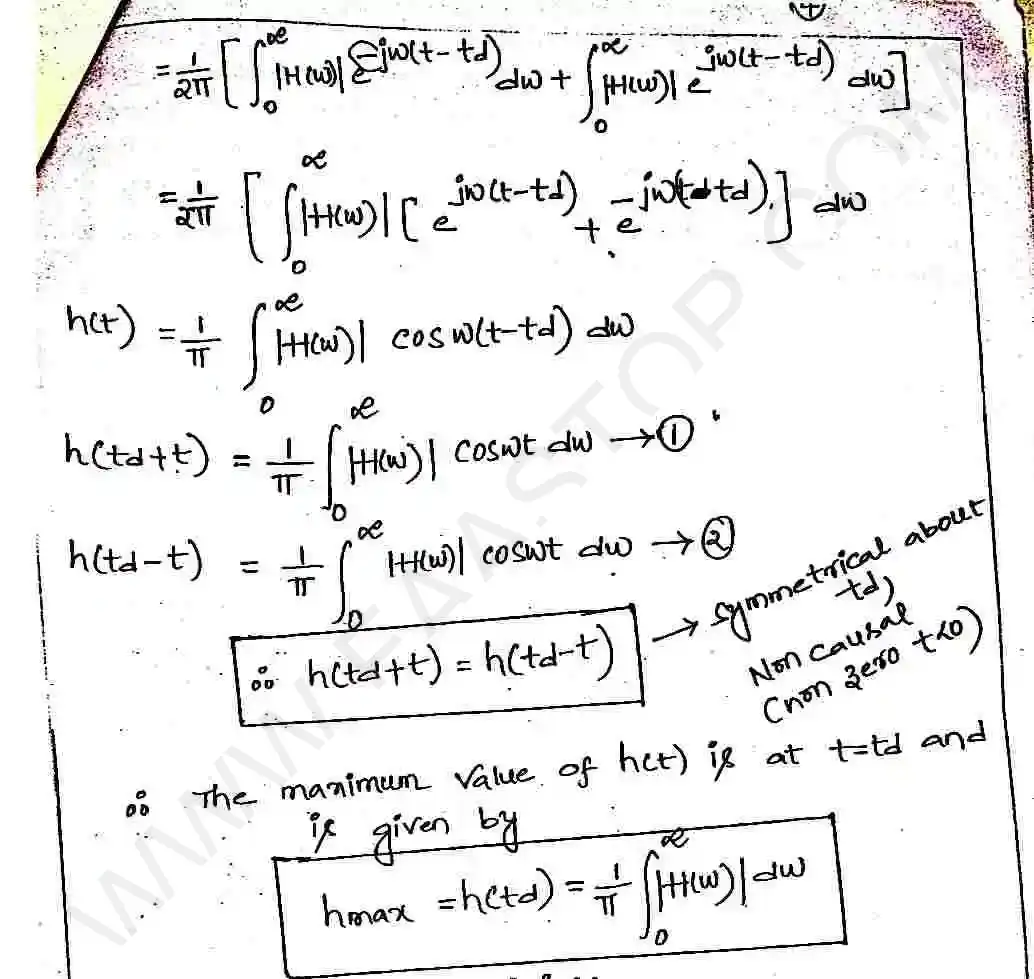 = 1/2π [ ∫₀^∞ |H(ω)| e^{-jω(t-td)} dω + ∫₀^∞ |H(ω)| e^{jω(t-td)} dω ]
= 1/2π [ ∫₀^∞ |H(ω)| [ e^{jω(t-td)} + e^{-jω(t-td)} ] dω
h(t) = 1/π ∫₀^∞ |H(ω)| cos ω(t-td) dω
h(td+t) = 1/π ∫₀^∞ |H(ω)| cosωt dω → ①
h(td-t) = 1/π ∫₀^∞ |H(ω)| cosωt dω → ②
∴ h(td+t) = h(td-t) → symmetrical about
td)
Non causal
(non zero t<0)
∴ The maximum value of h(t) is at t=td and
is given by
hmax = h(td) = 1/π ∫₀^∞ |H(ω)| dω
WWW.EAASTOP.COM